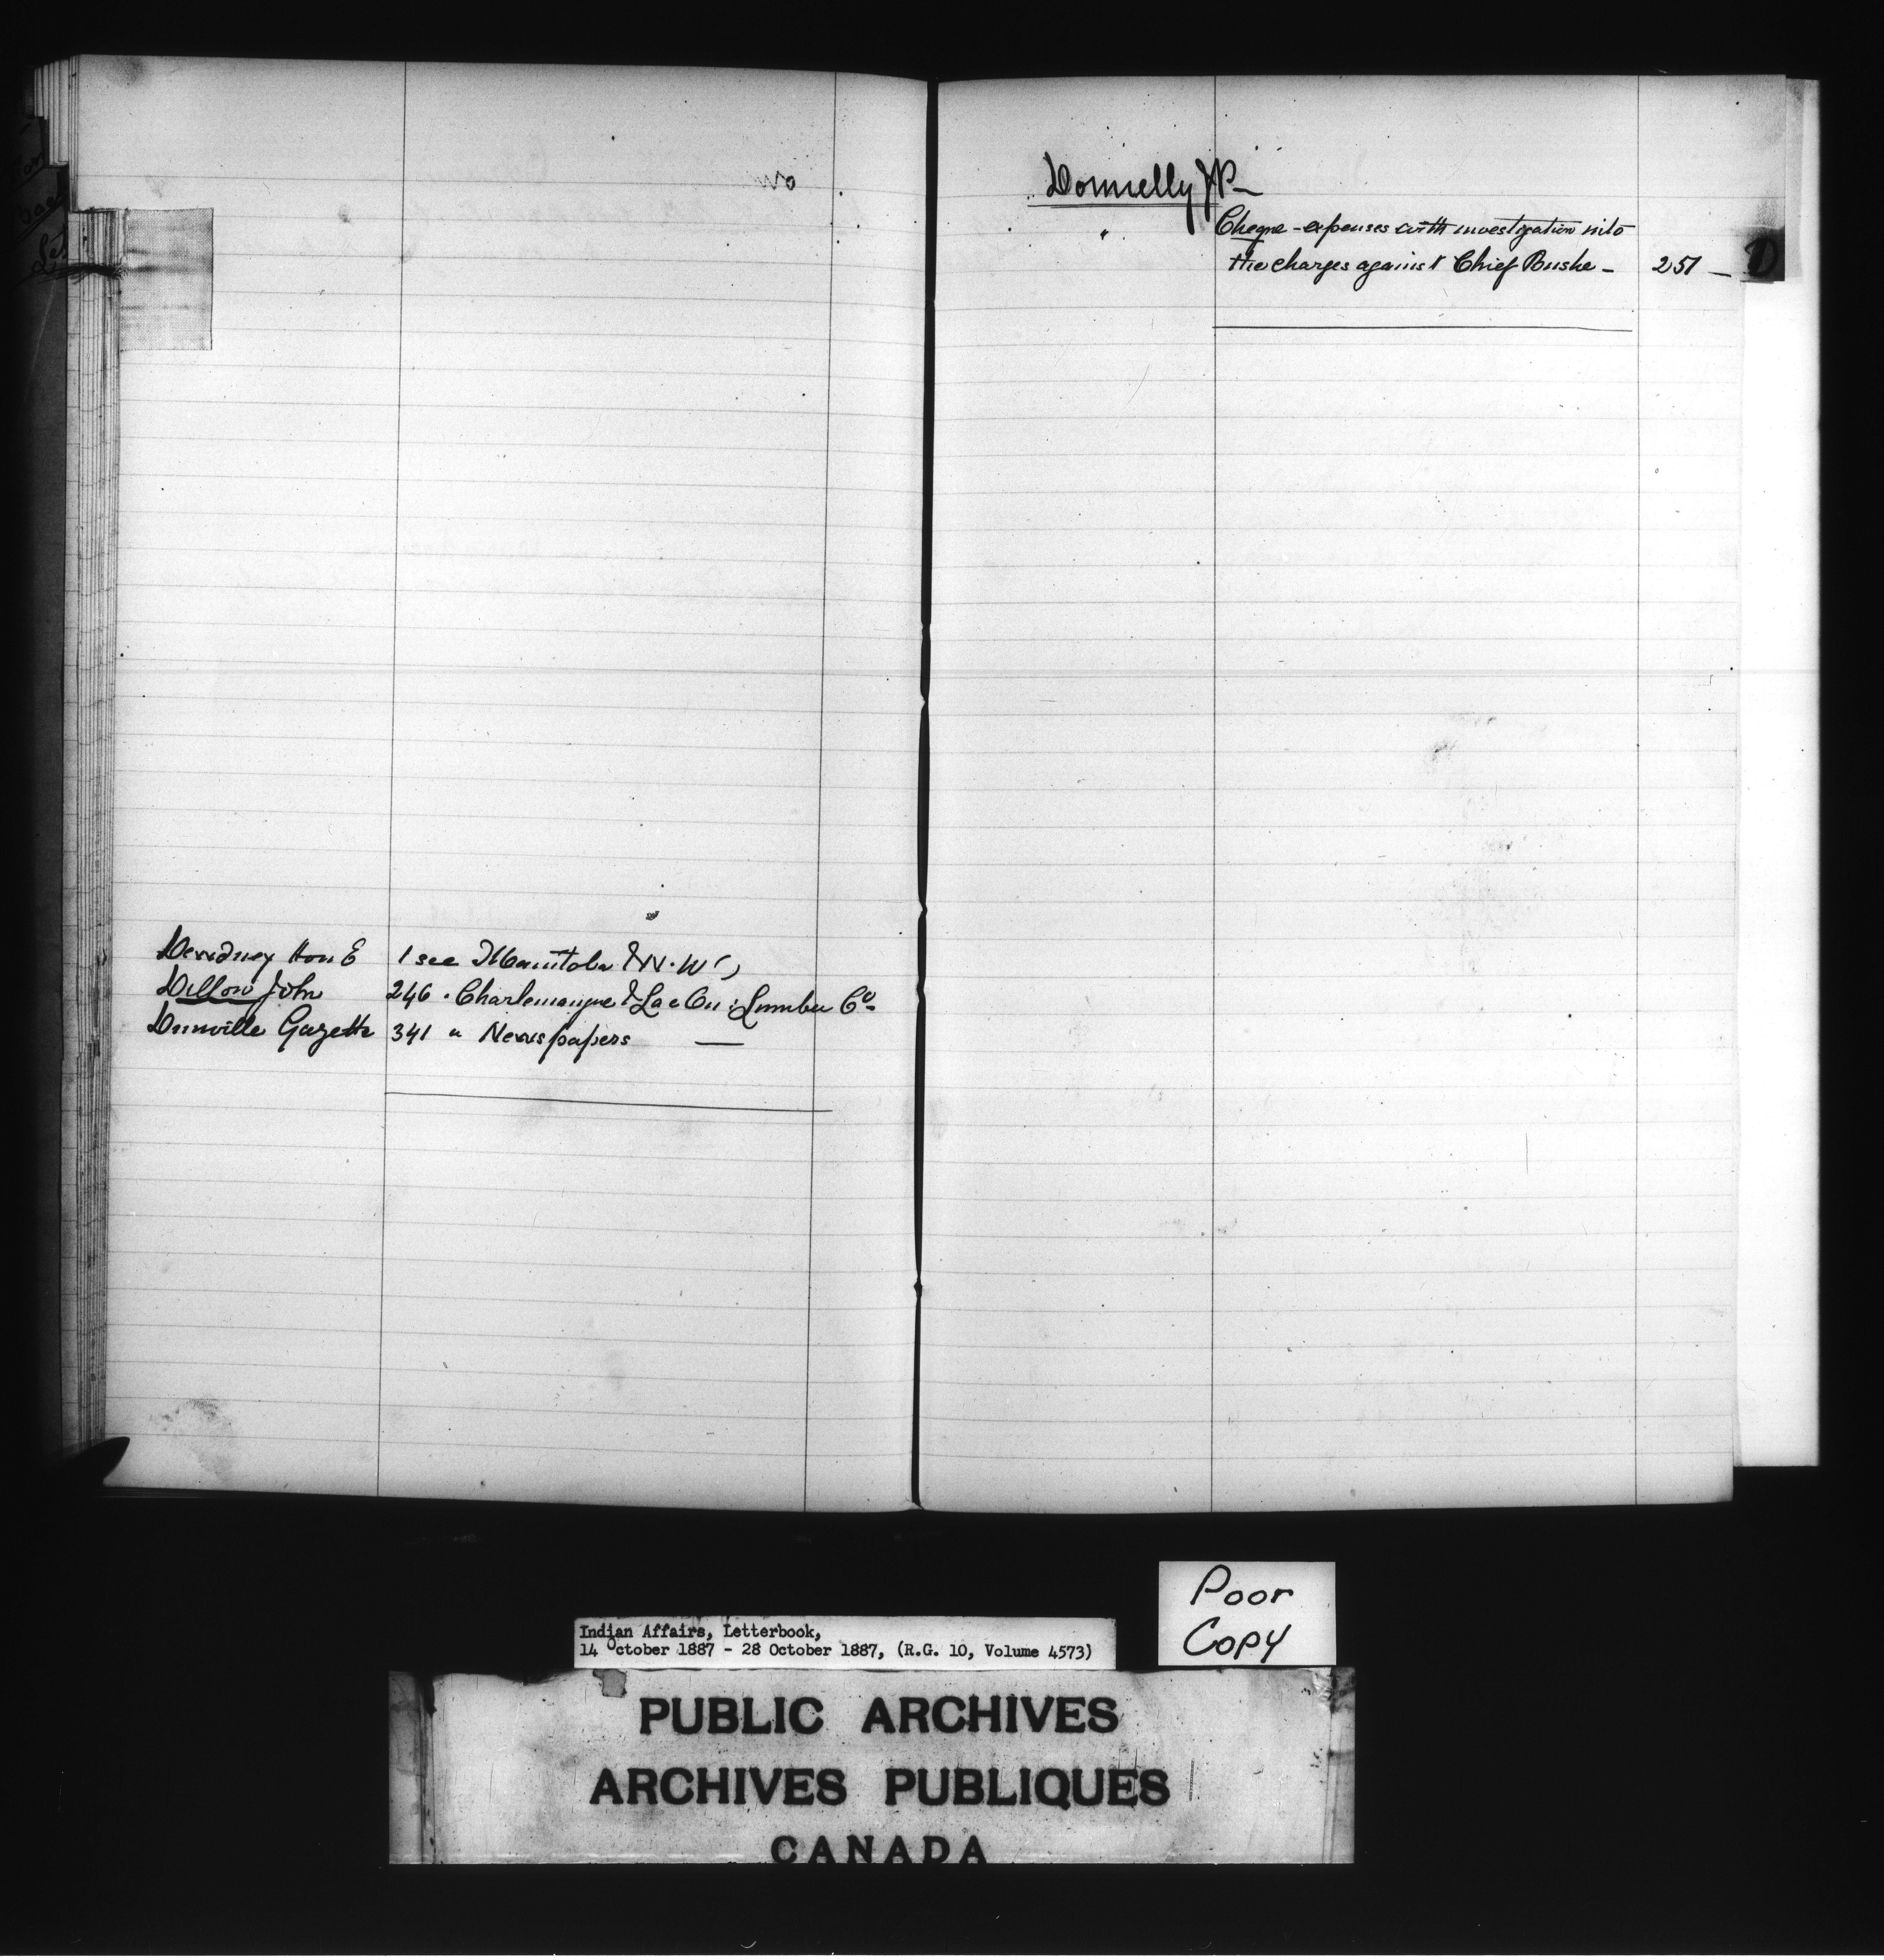 Dewdney Hon E 1 see Manitoba & N.W.T
Dillon John 246 " Charlemagne & Lac Ou: Lumber Co
Dunville Gazette 341 " Newspapers —
Donnelly JP —
Cheque - expenses with investigation into
the charges against Chief Bushe - 251 —
D
Poor
Copy
Indian Affairs, Letterbook,
14 October 1887 - 28 October 1887, (R.G. 10, Volume 4573)
PUBLIC ARCHIVES
ARCHIVES PUBLIQUES
CANADA